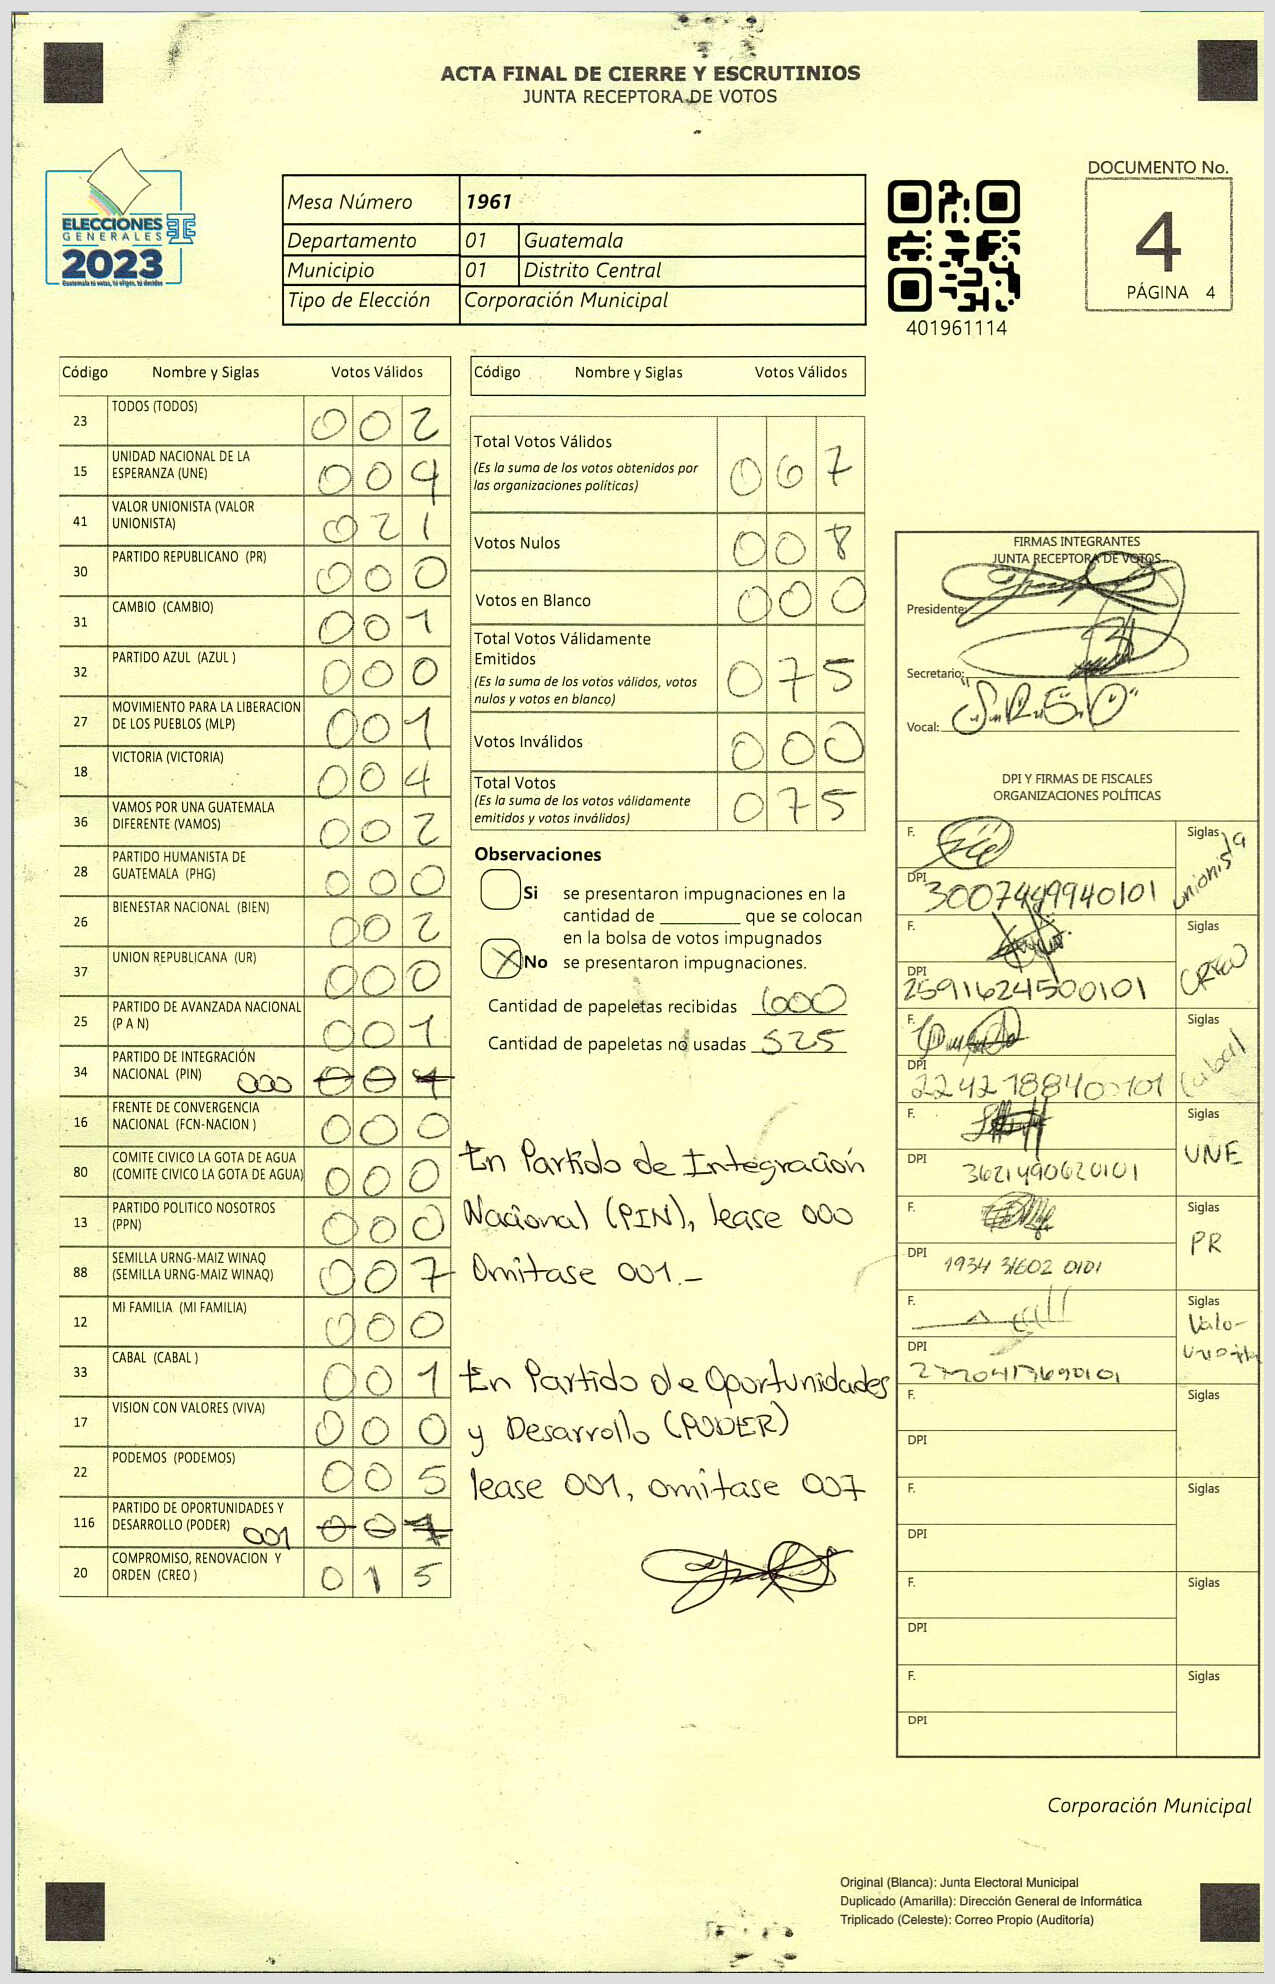 ACTA FINAL DE CIERRE Y ESCRUTINIOS
JUNTA RECEPTORA DE VOTOS
ELECCIONES
GENERALES
2023
Guatemala tú votas, tú eliges, tú decides
Mesa Número 1961
Departamento 01 Guatemala
Municipio 01 Distrito Central
Tipo de Elección Corporación Municipal
401961114
DOCUMENTO No.
4
PÁGINA 4
Código Nombre y Siglas Votos Válidos
23 TODOS (TODOS) 002
15 UNIDAD NACIONAL DE LA ESPERANZA (UNE) 004
41 VALOR UNIONISTA (VALOR UNIONISTA) 021
30 PARTIDO REPUBLICANO (PR) 000
31 CAMBIO (CAMBIO) 001
32 PARTIDO AZUL (AZUL ) 000
27 MOVIMIENTO PARA LA LIBERACION DE LOS PUEBLOS (MLP) 001
18 VICTORIA (VICTORIA) 004
36 VAMOS POR UNA GUATEMALA DIFERENTE (VAMOS) 002
28 PARTIDO HUMANISTA DE GUATEMALA (PHG) 000
26 BIENESTAR NACIONAL (BIEN) 002
37 UNION REPUBLICANA (UR) 000
25 PARTIDO DE AVANZADA NACIONAL (P A N) 001
34 PARTIDO DE INTEGRACIÓN NACIONAL (PIN) 000 001
16 FRENTE DE CONVERGENCIA NACIONAL (FCN-NACION ) 000
80 COMITE CIVICO LA GOTA DE AGUA (COMITE CIVICO LA GOTA DE AGUA) 000
13 PARTIDO POLITICO NOSOTROS (PPN) 000
88 SEMILLA URNG-MAIZ WINAQ (SEMILLA URNG-MAIZ WINAQ) 007
12 MI FAMILIA (MI FAMILIA) 000
33 CABAL (CABAL ) 001
17 VISION CON VALORES (VIVA) 000
22 PODEMOS (PODEMOS) 005
116 PARTIDO DE OPORTUNIDADES Y DESARROLLO (PODER) 001 007
20 COMPROMISO, RENOVACION Y ORDEN (CREO ) 015
Código Nombre y Siglas Votos Válidos
Total Votos Válidos 067
(Es la suma de los votos obtenidos por
las organizaciones políticas)
Votos Nulos 008
Votos en Blanco 000
Total Votos Válidamente
Emitidos 075
(Es la suma de los votos válidos, votos
nulos y votos en blanco)
Votos Inválidos 000
Total Votos 075
(Es la suma de los votos válidamente
emitidos y votos inválidos)
Observaciones
Si se presentaron impugnaciones en la
cantidad de ________ que se colocan
en la bolsa de votos impugnados
X No se presentaron impugnaciones.
Cantidad de papeletas recibidas 600
Cantidad de papeletas no usadas 525
En Partido de Integración
Nacional (PIN), lease 000
Omitase 001.-
En Partido de Oportunidades
y Desarrollo (PODER)
lease 001, omitase 007
FIRMAS INTEGRANTES
JUNTA RECEPTORA DE VOTOS
Presidente:
Secretario:
Vocal:
DPI Y FIRMAS DE FISCALES
ORGANIZACIONES POLÍTICAS
F. Siglas Unionista
DPI 3007449940101
F. Siglas CREO
DPI 25911624500101
F. Siglas Cabal
DPI 2242188400101
F. Siglas UNE
DPI 3621490620101
F. Siglas PR
DPI 1934 31602 0101
F. Siglas Valo-
DPI 2770417690101
F. Siglas
DPI
F. Siglas
DPI
F. Siglas
DPI
F. Siglas
DPI
Corporación Municipal
Original (Blanca): Junta Electoral Municipal
Duplicado (Amarilla): Dirección General de Informática
Triplicado (Celeste): Correo Propio (Auditoría)